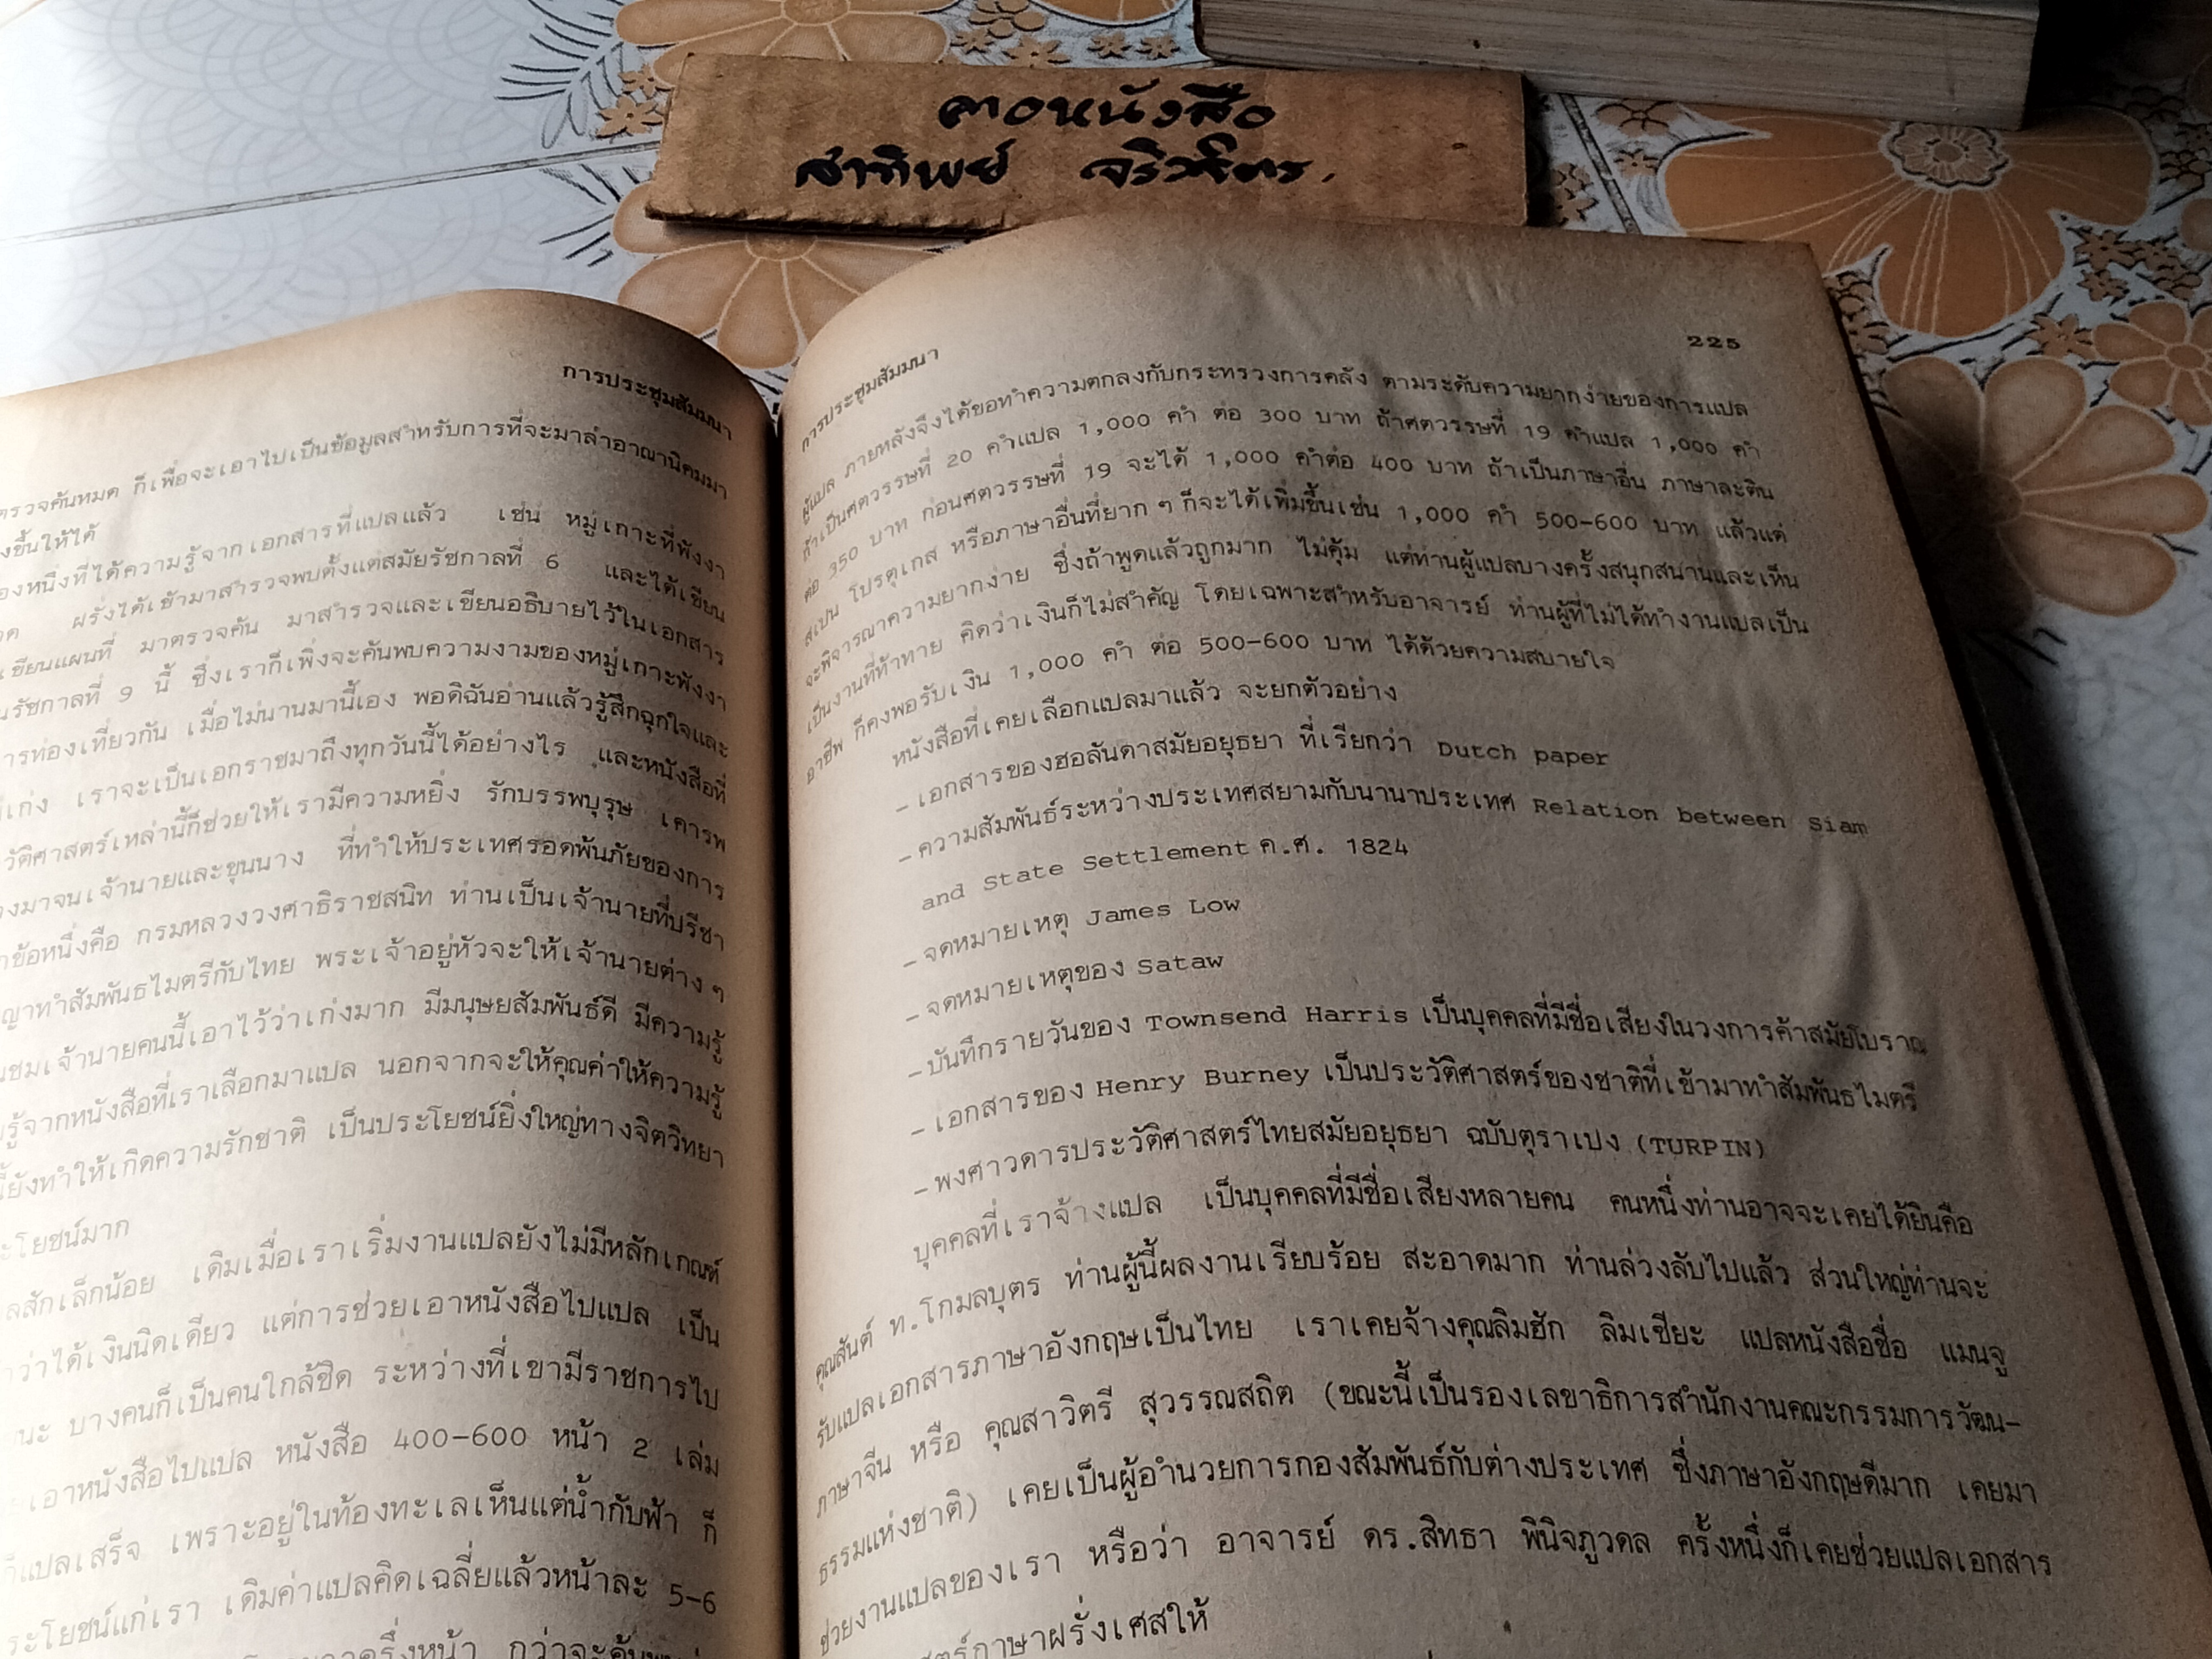 คาอหนังสือ
สาทิพย์
การประชุมสัมมนา
ตรวจค้นหมด ก็เพื่อจะเอาไปเป็นข้อมูลสำหรับการที่จะมาล่าอาณานิคมมา
งขึ้นให้ได้
องหนึ่งที่ได้ความรู้จากเอกสารที่แปลแล้ว เช่น หมู่เกาะที่พังงา
ฝรั่งได้เข้ามาสำรวจพบตั้งแต่สมัยรัชกาลที่ 6 และได้เขียน
เขียนแผนที่ มาตรวจค้น มาสำรวจและเขียนอธิบายไว้ในเอกสาร
นรัชกาลที่ 9 นี้ ซึ่งเราก็เพิ่งจะค้นพบความงามของหมู่เกาะพังงา
ารท่องเที่ยวกัน เมื่อไม่นานมานี้เอง พอดิฉันอ่านแล้วรู้สึกฉุกใจและ
เก่ง เราจะเป็นเอกราชมาถึงทุกวันนี้ได้อย่างไร และหนังสือที่
วัติศาสตร์เหล่านี้ก็ช่วยให้เรามีความหยิ่ง รักบรรพบุรุษ เคารพ
งมาจนเจ้านายและขุนนาง ที่ทำให้ประเทศรอดพ้นภัยของการ
ข้อหนึ่งคือ กรมหลวงวงศาธิราชสนิท ท่านเป็นเจ้านายที่ปรีชา
ญาทำสัมพันธไมตรีกับไทย พระเจ้าอยู่หัวจะให้เจ้านายต่าง ๆ
นชมเจ้านายคนนี้เอาไว้ว่าเก่งมาก มีมนุษยสัมพันธ์ดี มีความรู้
รู้จากหนังสือที่เราเลือกมาแปล นอกจากจะให้คุณค่าให้ความรู้
ยังทำให้เกิดความรักชาติ เป็นประโยชน์ยิ่งใหญ่ทางจิตวิทยา
ะโยชน์มาก
ลสักเล็กน้อย เดิมเมื่อเราเริ่มงานแปลยังไม่มีหลักเกณฑ์
ว่าได้เงินนิดเดียว แต่การช่วยเอาหนังสือไปแปล เป็น
นะ บางคนก็เป็นคนใกล้ชิด ระหว่างที่เขามีราชการไป
เอาหนังสือไปแปล หนังสือ 400-600 หน้า 2 เล่ม
ก็แปลเสร็จ เพราะอยู่ในท้องทะเลเห็นแต่น้ำกับฟ้า ก็
ระโยชน์แก่เรา เดิมค่าแปลคิดเฉลี่ยแล้วหน้าละ 5-6
ครึ่งหน้า กว่าจะค้น
การประชุมสัมมนา 225
ผู้แปล ภายหลังจึงได้ขอทำความตกลงกับกระทรวงการคลัง ตามระดับความยากง่ายของการแปล
ถ้าเป็นศตวรรษที่ 20 คำแปล 1,000 คำ ต่อ 300 บาท ถ้าศตวรรษที่ 19 คำแปล 1,000 คำ
ต่อ 350 บาท ก่อนศตวรรษที่ 19 จะได้ 1,000 คำต่อ 400 บาท ถ้าเป็นภาษาอื่น ภาษาละติน
สเปน โปรตุเกส หรือภาษาอื่นที่ยาก ๆ ก็จะได้เพิ่มขึ้นเช่น 1,000 คำ 500-600 บาท แล้วแต่
จะพิจารณาความยากง่าย ซึ่งถ้าพูดแล้วถูกมาก ไม่คุ้ม แต่ท่านผู้แปลบางครั้งสนุกสนานและเห็น
เป็นงานที่ท้าทาย คิดว่าเงินก็ไม่สำคัญ โดยเฉพาะสำหรับอาจารย์ ท่านผู้ที่ไม่ได้ทำงานแปลเป็น
อาชีพ ก็คงพอรับเงิน 1,000 คำ ต่อ 500-600 บาท ได้ด้วยความสบายใจ
หนังสือที่เคยเลือกแปลมาแล้ว จะยกตัวอย่าง
- เอกสารของฮอลันดาสมัยอยุธยา ที่เรียกว่า Dutch paper
- ความสัมพันธ์ระหว่างประเทศสยามกับนานาประเทศ Relation between Siam
and State Settlement ค.ศ. 1824
- จดหมายเหตุ James Low
- จดหมายเหตุของ Sataw
- บันทึกรายวันของ Townsend Harris เป็นบุคคลที่มีชื่อเสียงในวงการค้าสมัยโบราณ
- เอกสารของ Henry Burney เป็นประวัติศาสตร์ของชาติที่เข้ามาทำสัมพันธไมตรี
- พงศาวดารประวัติศาสตร์ไทยสมัยอยุธยา ฉบับตุราเปง (TURPIN)
บุคคลที่เราจ้างแปล เป็นบุคคลที่มีชื่อเสียงหลายคน คนหนึ่งท่านอาจจะเคยได้ยินคือ
คุณสันต์ ท.โกมลบุตร ท่านผู้นี้ผลงานเรียบร้อย สะอาดมาก ท่านล่วงลับไปแล้ว ส่วนใหญ่ท่านจะ
รับแปลเอกสารภาษาอังกฤษเป็นไทย เราเคยจ้างคุณลิมฮัก ลิมเชียะ แปลหนังสือชื่อ แมนจู
ภาษาจีน หรือ คุณสาวิตรี สุวรรณสถิต (ขณะนี้เป็นรองเลขาธิการสำนักงานคณะกรรมการวัฒน-
ธรรมแห่งชาติ) เคยเป็นผู้อำนวยการกองสัมพันธ์กับต่างประเทศ ซึ่งภาษาอังกฤษดีมาก เคยมา
ช่วยงานแปลของเรา หรือว่า อาจารย์ ดร.สิทธา พินิจภูวดล ครั้งหนึ่งก็เคยช่วยแปลเอกสาร
สตร์ภาษาฝรั่งเศสให้